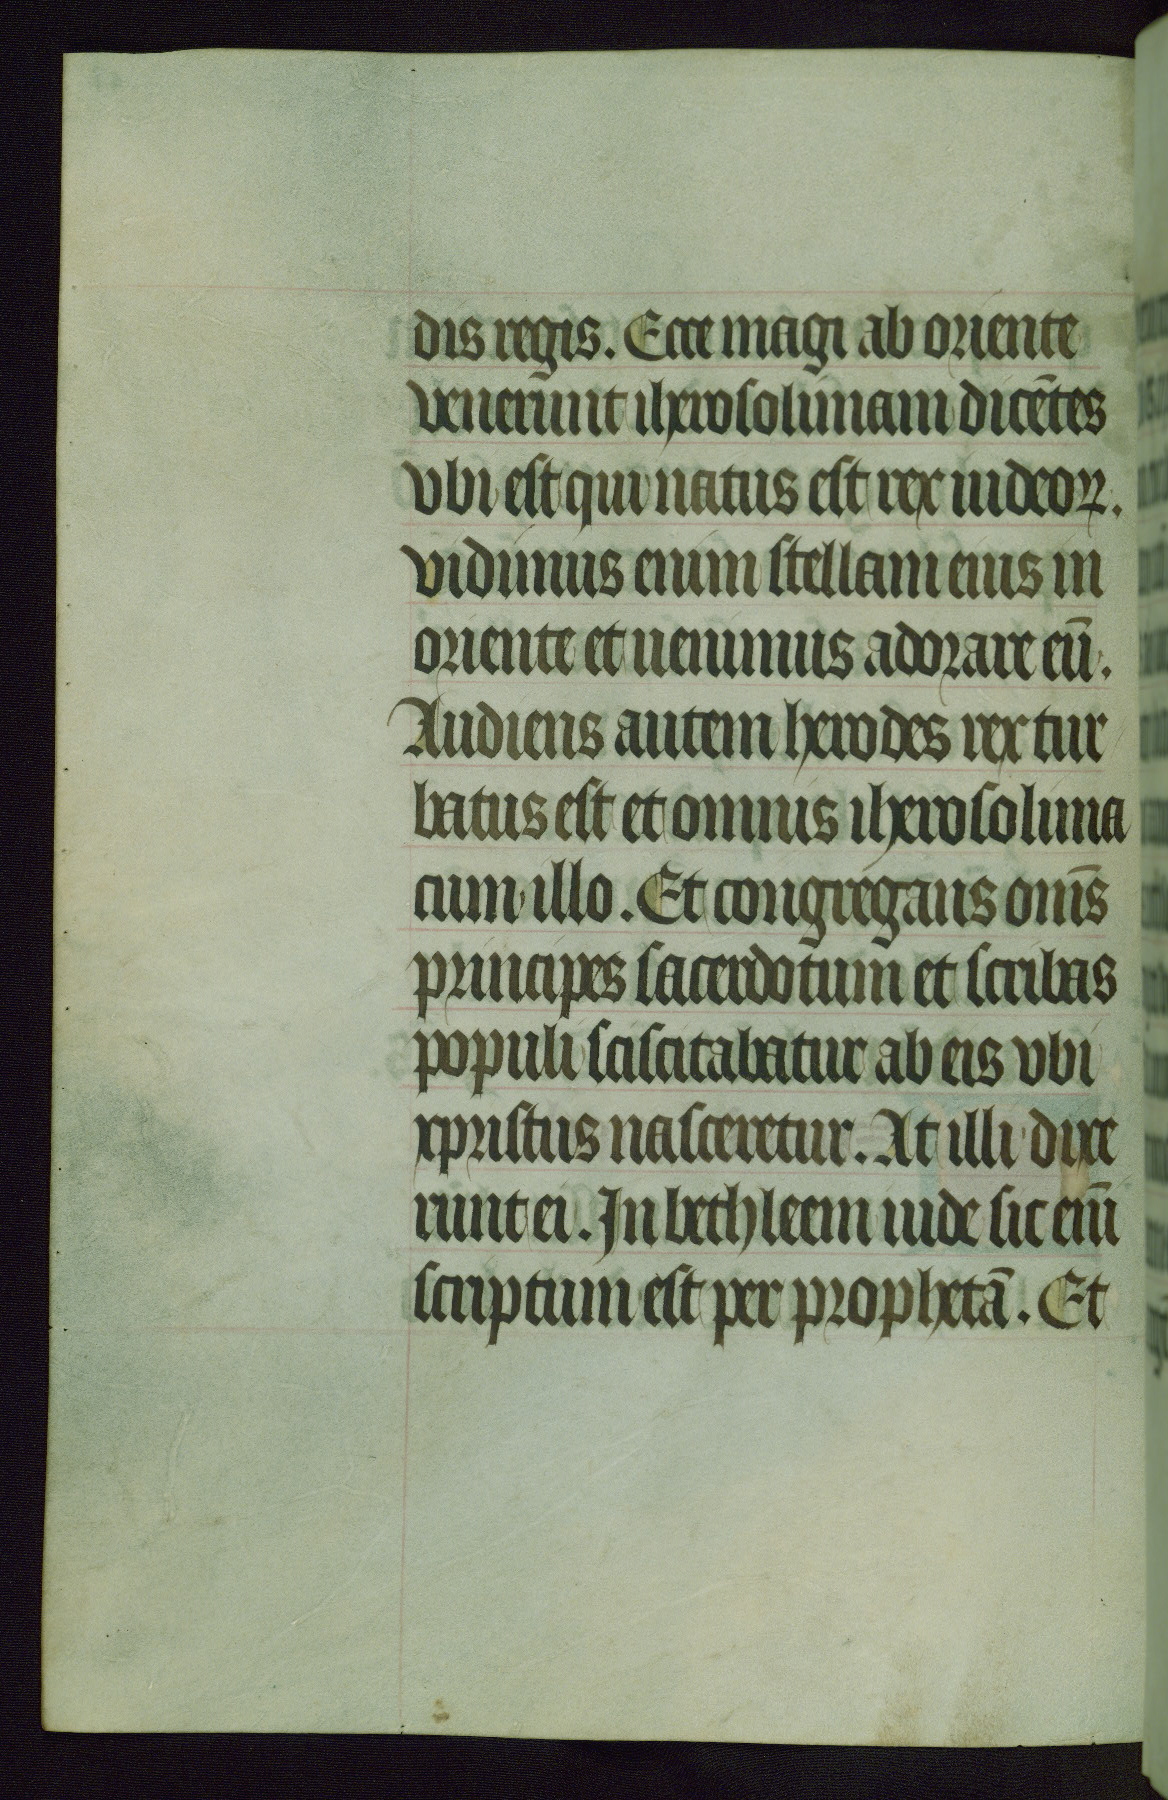 dis regis. Ecce magi ab oriente
venerunt iherosolimam dicẽtes
vbi est qui natus est rex iudeoꝝ.
vidimus enim stellam eius in
oriente et uenimus adorare eũ.
Audiens autem herodes rex tur
batus est et omnis iherosolima
cum illo. Et congregans om̃s
principes sacerdotum et scribas
populi sciscitabatur ab eis vbi
xpristus nasceretur. At illi dixe
runt ei. In bethleem iude sic em̃
scriptum est per prophetã. Et